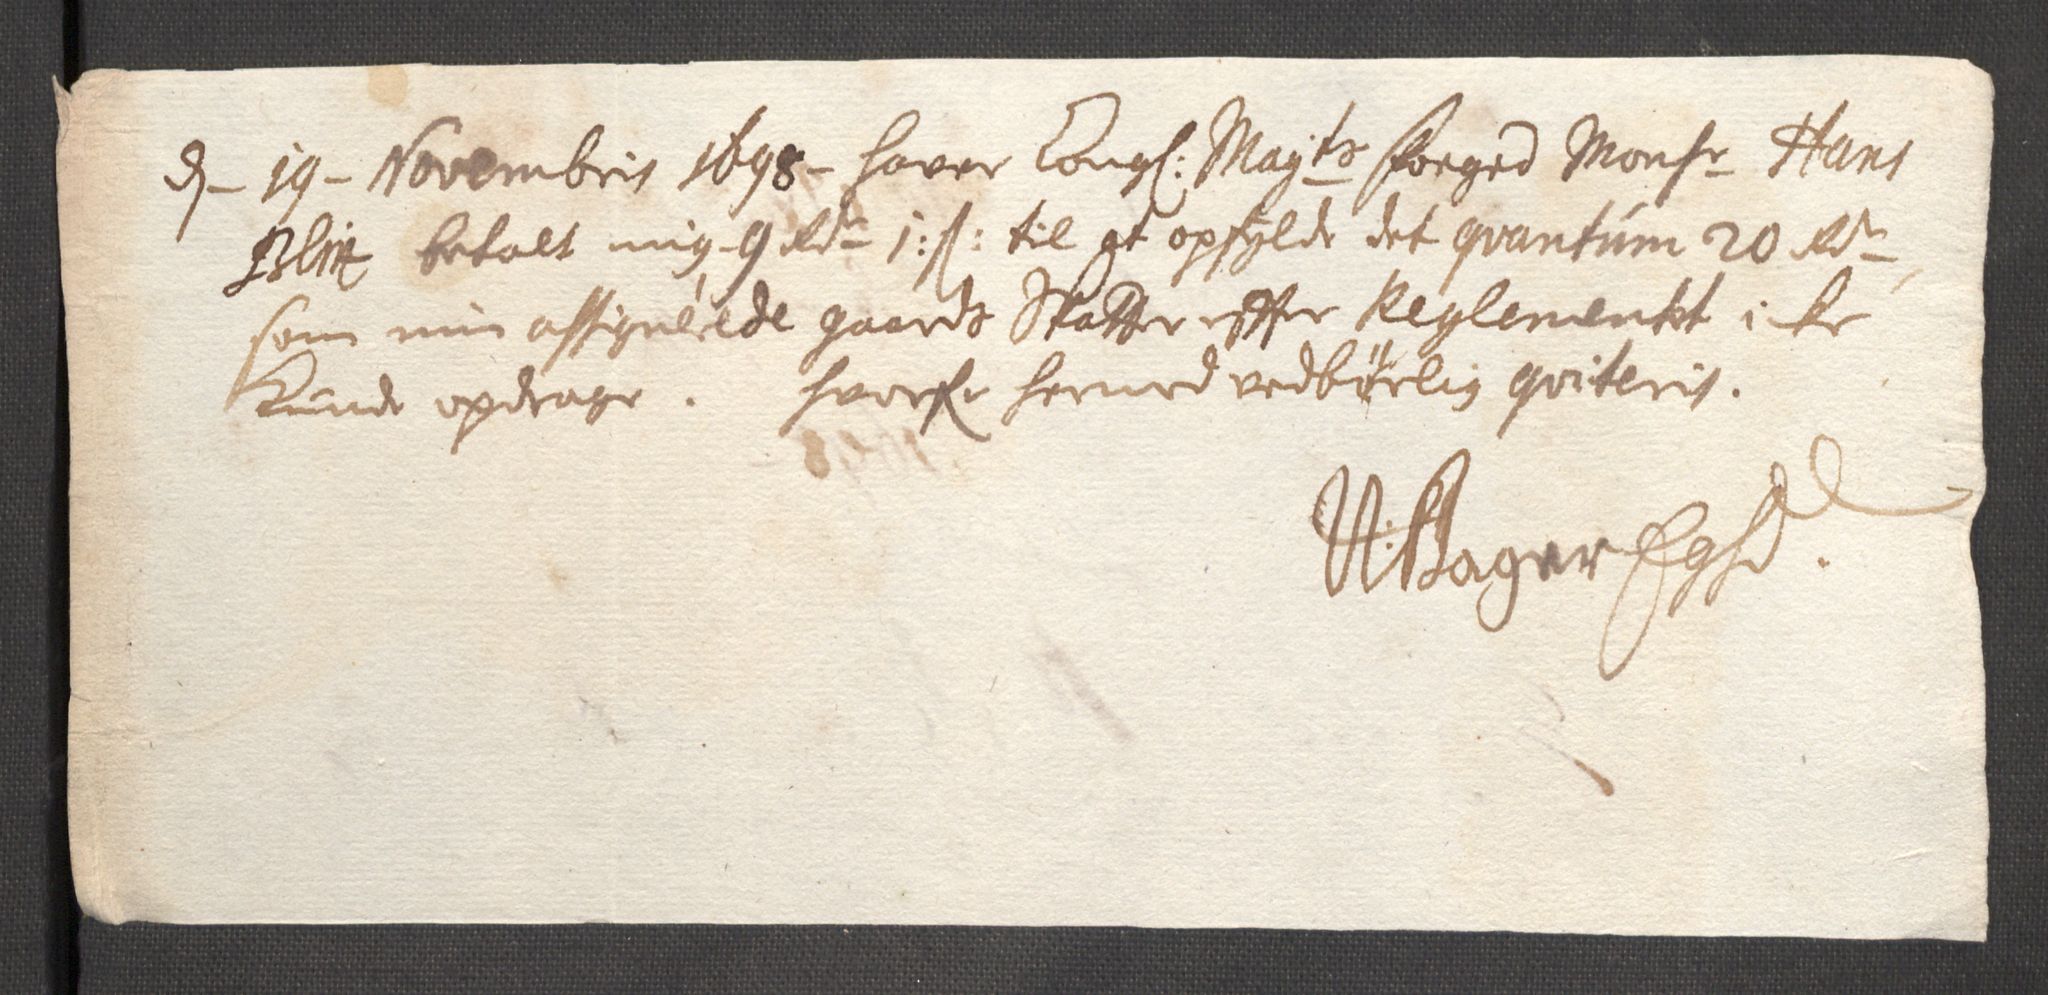 d – 19 – Novembris 1698 – haver Kongl: Mayts foged Monsr Hans
Blix betalt mig 9 Rdr 1: s: til at opfylde det qvantum 20 Rdr
som min assignerede gaards Skatter efter Reglementet i
kunde opdrage. hvorfor hermed vedbørlig qviteris.
Bager